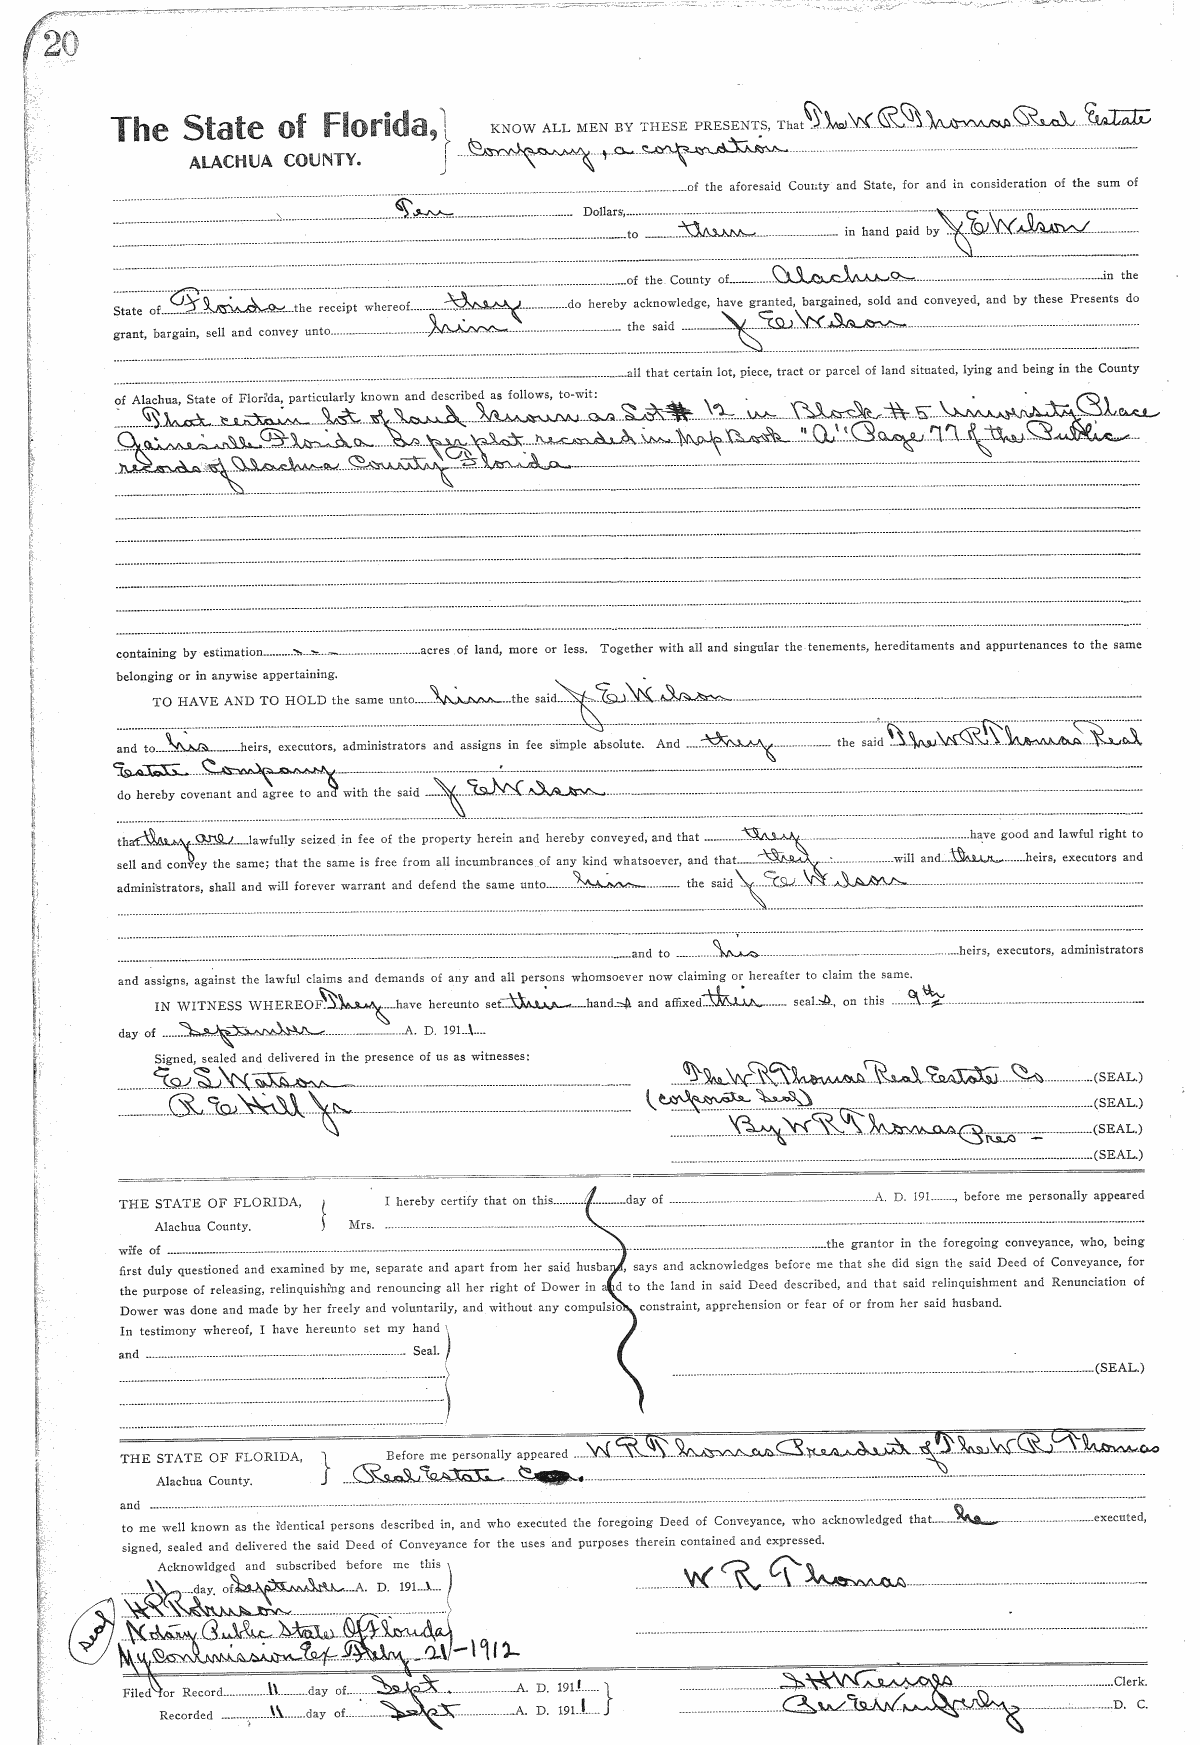 20
The State of Florida, KNOW ALL MEN BY THESE PRESENTS, That The W R Thomas Real Estate
ALACHUA COUNTY. Company, a corporation
of the aforesaid County and State, for and in consideration of the sum of
Ten Dollars,
to them in hand paid by J E Wilson
of the County of Alachua in the
State of Florida the receipt whereof they do hereby acknowledge, have granted, bargained, sold and conveyed, and by these Presents do
grant, bargain, sell and convey unto him the said J E Wilson
all that certain lot, piece, tract or parcel of land situated, lying and being in the County
of Alachua, State of Florida, particularly known and described as follows, to-wit:
That certain lot of land known as Lot # 12 in Block # 5 University Place
Gainesville Florida as per plat recorded in Map Book "A" Page 77 of the Public
records of Alachua County Florida
containing by estimation - - - acres of land, more or less. Together with all and singular the tenements, hereditaments and appurtenances to the same
belonging or in anywise appertaining.
TO HAVE AND TO HOLD the same unto him the said J E Wilson
and to his heirs, executors, administrators and assigns in fee simple absolute. And they the said The W R Thomas Real
Estate Company
do hereby covenant and agree to and with the said J E Wilson
that they are lawfully seized in fee of the property herein and hereby conveyed, and that they have good and lawful right to
sell and convey the same; that the same is free from all incumbrances of any kind whatsoever, and that they will and their heirs, executors and
administrators, shall and will forever warrant and defend the same unto him the said J E Wilson
and to his heirs, executors, administrators
and assigns, against the lawful claims and demands of any and all persons whomsoever now claiming or hereafter to claim the same.
IN WITNESS WHEREOF They have hereunto set their hand s and affixed their seal s, on this 9th
day of September A. D. 191 1
Signed, sealed and delivered in the presence of us as witnesses:
E S Watson The W R Thomas Real Estate Co (SEAL.)
R E Hill Jr (corporate Seal) (SEAL.)
By W R Thomas Pres - (SEAL.)
(SEAL.)
THE STATE OF FLORIDA, I hereby certify that on this day of A. D. 191 , before me personally appeared
Alachua County. Mrs.
wife of the grantor in the foregoing conveyance, who, being
first duly questioned and examined by me, separate and apart from her said husband, says and acknowledges before me that she did sign the said Deed of Conveyance, for
the purpose of releasing, relinquishing and renouncing all her right of Dower in and to the land in said Deed described, and that said relinquishment and Renunciation of
Dower was done and made by her freely and voluntarily, and without any compulsion, constraint, apprehension or fear of or from her said husband.
In testimony whereof, I have hereunto set my hand
and Seal.
(SEAL.)
THE STATE OF FLORIDA, Before me personally appeared W R Thomas President of The W R Thomas
Alachua County. Real Estate
and
to me well known as the identical persons described in, and who executed the foregoing Deed of Conveyance, who acknowledged that he executed,
signed, sealed and delivered the said Deed of Conveyance for the uses and purposes therein contained and expressed.
Acknowldged and subscribed before me this
11 day of September A. D. 191 1 W R Thomas
Seal H P Robinson
Notary Public State Of Florida
My Commission Ex Feby 21-1912
Filed for Record 11 day of Sept. A. D. 191 1 S H Wienges Clerk.
Recorded 11 day of Sept A. D. 191 1 Per E Wimberly D. C.